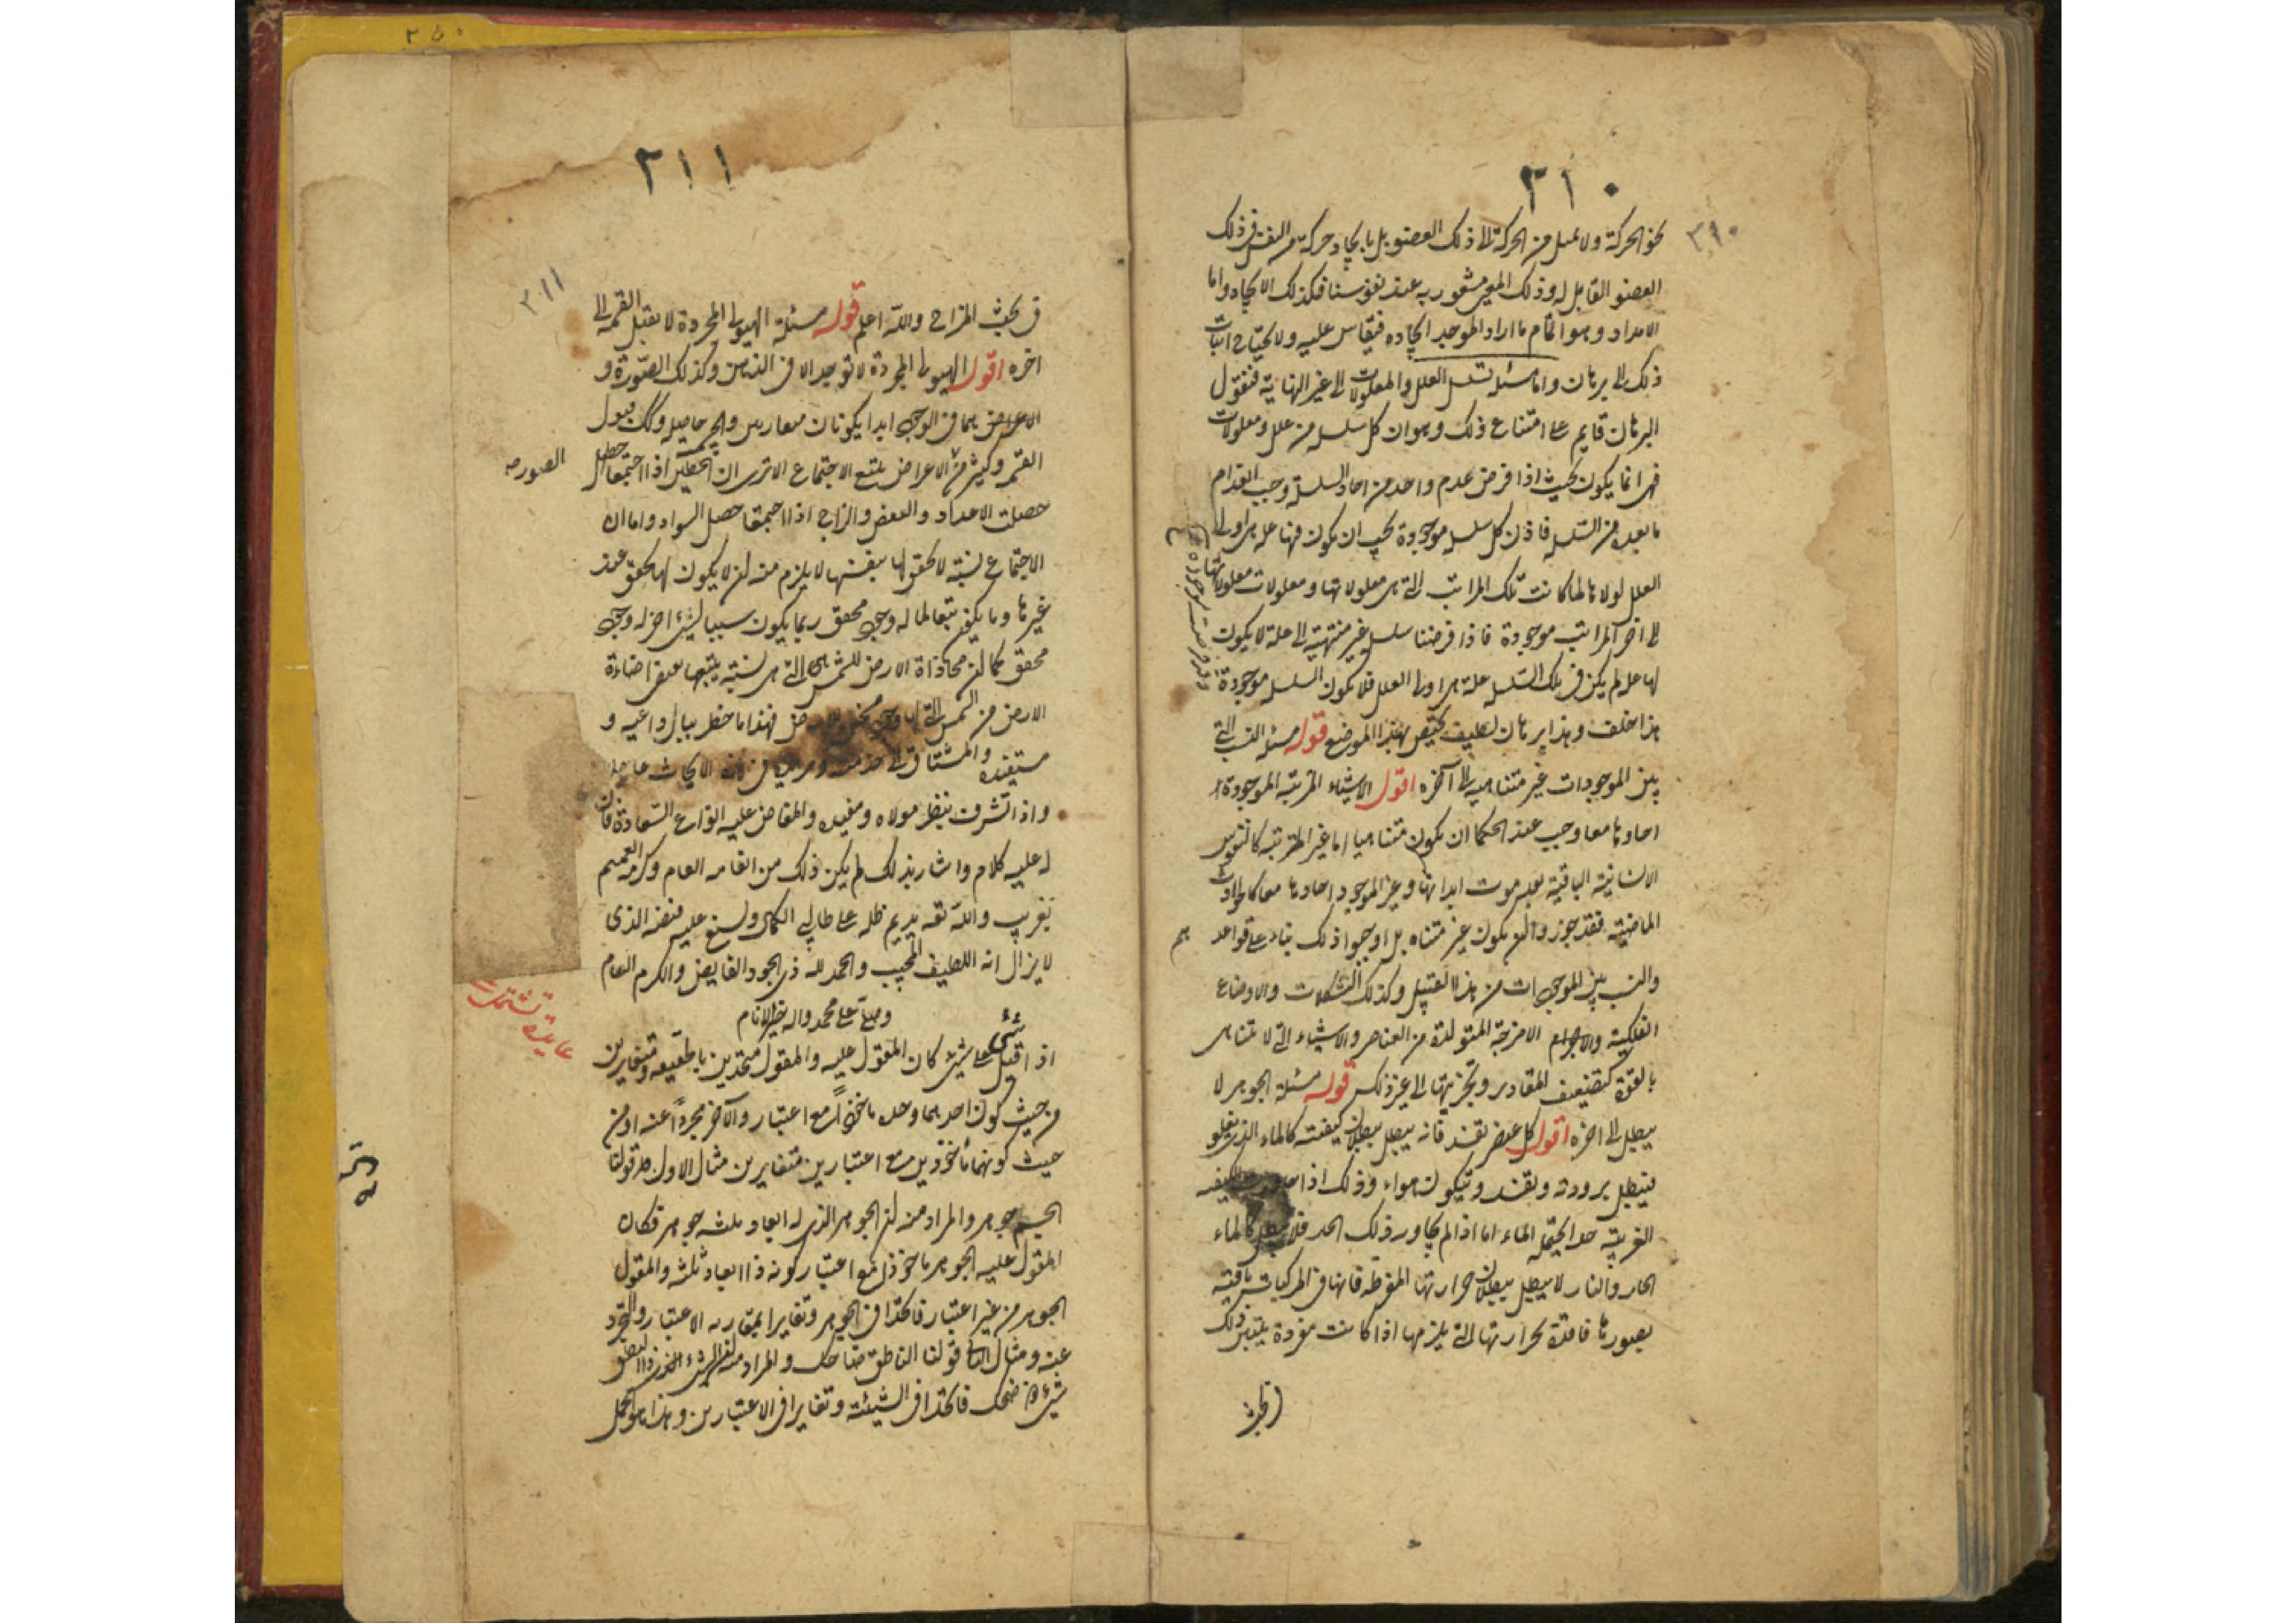 ٢٥٠
٣١٠
٣١٠
نحو الحركة ولا عمل من الحركة الى ذلك العضو بل بايجاد حركة من النفس في ذلك
العضو القابل له وذلك المعنى مشعور به عند نفوسنا فكذلك الايجاد واما
الامداد وهو اتمام ما اراد الموجد ايجاده فيقاس عليه ولا يحتاج اثبات
ذلك الى برهان واما مسئلة تسلسل العلل والمعلولات الى غير النهاية فنقول
البرهان قايم على امتناع ذلك وهو ان كل سلسلة من علل ومعلولات
فهي انما يكون بحيث اذا فرض عدم واحد من احاد السلسلة وجب انعدام
ما بعده من السلسلة فاذن كل سلسلة موجودة يجب ان يكون فيها علة هي اولى
العلل لولاها لما كانت تلك المراتب التي هي معلولاتها ومعلولات معلولاتها
الى اخر المراتب موجودة فاذا فرضنا سلسلة غير منتهية الى علة لا يكون
لها علة لم يكن في تلك السلسلة علة هي اولى العلل فلا يكون السلسلة موجودة
هذا خلف وهذا برهان لطيف يختص بهذا الموضع قوله مسئلة النسب التي
بين الموجودات غير متناهية الى آخره اقول الاشياء المرتبة الموجودة
احادها معا وجب عند الحكما ان يكون متناهيا اما غير المرتبة كالنفوس
الانسانية الباقية بعد موت ابدانها وغير الموجود احادها معا كالحوادث
الماضية فقد جوزوا ان يكون غير متناه بل اوجبوا ذلك بناء على قواعد
هم
والنسب بين الموجودات من هذا القبيل وكذلك التشكلات والاوضاع
الفلكية والاجرام الامزجة المتولدة من العناصر والاشياء التي لا تتناهى
بالقوة كتضعيف المقادير وتجزيتها الى غير ذلك قوله مسئلة الجوهر لا
يبطل الى اخره اقول كل عنصر يفسد فانه يبطل ببطلان كيفيته كالماء الذي يغلو
فيبطل برودته ويفسد ويتكون هواء وذلك اذا جاوزت الكيفية
الغريبة حدا يحتمله الماء اما اذا لم يجاوز ذلك الحد فلا يبطل كالماء
الحار والنار لا يبطل ببطلان حرارتها المفرطة فانها في المركبات باقية
بصورها فاقدة لحرارتها التي يلزمها اذا كانت مفردة يتبين ذلك
في بحث
٣١١
٣١١
في بحث المزاج والله اعلم قوله مسئلة الهيولى المجردة لا يقبل القسمة الى
اخره اقول الهيولى المجردة لا توجد الا في الذهن وكذلك الصورة و
الاعراض هما في الوجود ابدا يكونان متقارنين والجسمية حاصلة وكك قبول
القسمة وكثير من الاعراض يتبع الاجتماع الا ترى ان الخطين اذا اجتمعا حصل
الصورة
حصلت الاعداد والعفص والزاج اذا اجتمعا حصل السواد واما ان
الاجتماع نسبة لا تحقق لها بنفسها لا يلزم منه ان لا يكون لها تحقق عند
غيرها وما يكون تبعا لما له وجود محقق ربما يكون سببا لشيء اخر له وجود
محقق كما ان محاذاة الارض للشمس التي هي نسبة يتبعها بعض اضاءة
الارض من الشمس التي لها وجود محقق للارض فهذا ما خطر ببال داعيه و
مستفيده والمشتاق الى خدمته
واذا تشرف بنظر مولاه ومفيده والمفاض عليه انواع السعادة فان
له عليه كلام واشار بذلك لم يكن ذلك من انعامه العام وكرمه العميم
بغريب والله تعه يديم ظله على طالبي الكمال ويسبغ عليه فيضه الذي
لا يزال انه اللطيف المجيب والحمد لله ذي الجود الفايض والكرم العام
وصلى على محمد واله خير الانام
اذا قيل شيء على شيء كان المقول عليه والمقول متحدين بالطبيعة ومتغايرين
من حيث كون احدهما وحده ماخوذا مع اعتبار والآخر مجردا عنه او من
حيث كونهما مأخوذين مع اعتبارين متغايرين مثال الاول قولنا
الجسم جوهر والمراد منه ان الجوهر الذي له ابعاد ثلثة جوهر فكان
المقول عليه الجوهر ماخوذا مع اعتبار كونه ذا ابعاد ثلثة والمقول
الجوهر من غير اعتبار فاتحدا في الجوهر وتغايرا بمقارنه الاعتبار والتجرد
عنه ومثال الثاني قولنا الناطق ضاحك والمراد منه ان الشيء الذي ذا النطق
شيء ذو ضحك فاتحدا في الشيئية وتغايرا في الاعتبارين وهذا هو الحمل